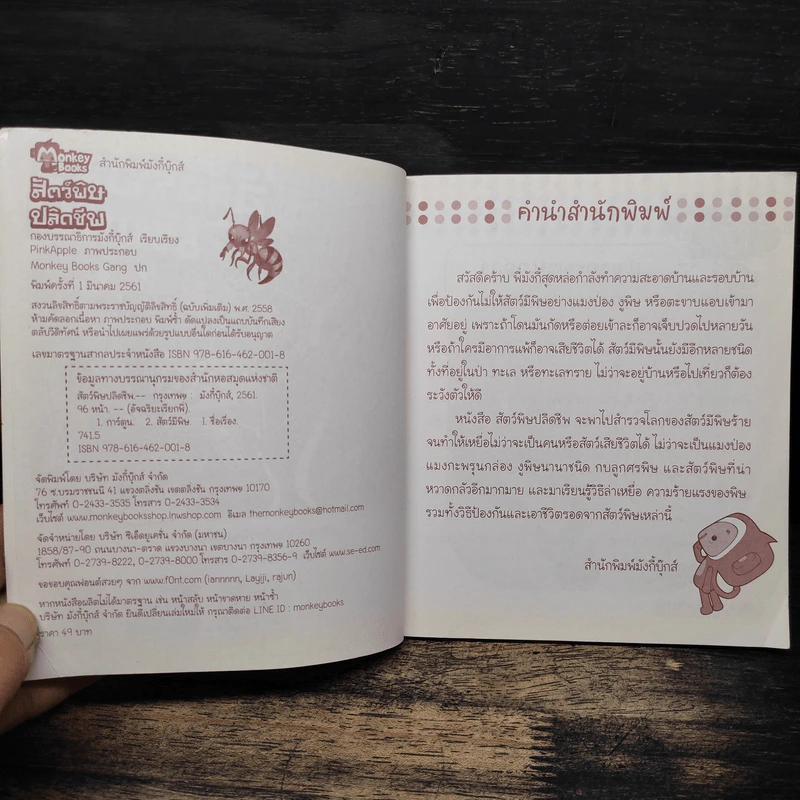 Monkey Books
สำนักพิมพ์มังกี้บุ๊กส์
สัตว์พิษ
ปลิดชีพ
กองบรรณาธิการมังกี้บุ๊กส์ เรียบเรียง
PinkApple ภาพประกอบ
Monkey Books Gang ปก
พิมพ์ครั้งที่ 1 มีนาคม 2561
สงวนลิขสิทธิ์ตามพระราชบัญญัติลิขสิทธิ์ (ฉบับเพิ่มเติม) พ.ศ. 2558
ห้ามคัดลอกเนื้อหา ภาพประกอบ พิมพ์ซ้ำ ดัดแปลงเป็นแถบบันทึกเสียง
ตลับวีดิทัศน์ หรือนำไปเผยแพร่ด้วยรูปแบบอื่นใดก่อนได้รับอนุญาต
เลขมาตรฐานสากลประจำหนังสือ ISBN 978-616-462-001-8
ข้อมูลทางบรรณานุกรมของสำนักหอสมุดแห่งชาติ
สัตว์พิษปลิดชีพ.-- กรุงเทพฯ : มังกี้บุ๊กส์, 2561.
96 หน้า. -- (อัจฉริยะเรียกพี่).
1. การ์ตูน. 2. สัตว์มีพิษ. I. ชื่อเรื่อง.
741.5
ISBN 978-616-462-001-8
จัดพิมพ์โดย บริษัท มังกี้บุ๊กส์ จำกัด
76 ซ.บรมราชชนนี 41 แขวงตลิ่งชัน เขตตลิ่งชัน กรุงเทพฯ 10170
โทรศัพท์ 0-2433-3535 โทรสาร 0-2433-3534
เว็บไซต์ www.monkeybooksshop.lnwshop.com อีเมล themonkeybooks@hotmail.com
จัดจำหน่ายโดย บริษัท ซีเอ็ดยูเคชั่น จำกัด (มหาชน)
1858/87-90 ถนนบางนา-ตราด แขวงบางนา เขตบางนา กรุงเทพฯ 10260
โทรศัพท์ 0-2739-8222, 0-2739-8000 โทรสาร 0-2739-8356-9 เว็บไซต์ www.se-ed.com
ขอขอบคุณฟอนต์สวยๆ จาก www.f0nt.com (iannnnn, Layiji, rajun)
หากหนังสือผลิตไม่ได้มาตรฐาน เช่น หน้าสลับ หน้าขาดหาย หน้าซ้ำ
บริษัท มังกี้บุ๊กส์ จำกัด ยินดีเปลี่ยนเล่มใหม่ให้ กรุณาติดต่อ LINE ID : monkeybooks
ราคา 49 บาท
คำนำสำนักพิมพ์
สวัสดีคร้าบ พี่มังกี้สุดหล่อกำลังทำความสะอาดบ้านและรอบบ้าน
เพื่อป้องกันไม่ให้สัตว์มีพิษอย่างแมงป่อง งูพิษ หรือตะขาบแอบเข้ามา
อาศัยอยู่ เพราะถ้าโดนมันกัดหรือต่อยเข้าละก็อาจเจ็บปวดไปหลายวัน
หรือถ้าใครมีอาการแพ้ก็อาจเสียชีวิตได้ สัตว์มีพิษนั้นยังมีอีกหลายชนิด
ทั้งที่อยู่ในป่า ทะเล หรือทะเลทราย ไม่ว่าจะอยู่บ้านหรือไปเที่ยวก็ต้อง
ระวังตัวให้ดี
หนังสือ สัตว์พิษปลิดชีพ จะพาไปสำรวจโลกของสัตว์มีพิษร้าย
จนทำให้เหยื่อไม่ว่าจะเป็นคนหรือสัตว์เสียชีวิตได้ ไม่ว่าจะเป็นแมงป่อง
แมงกะพรุนกล่อง งูพิษนานาชนิด กบลูกศรพิษ และสัตว์พิษที่น่า
หวาดกลัวอีกมากมาย และมาเรียนรู้วิธีล่าเหยื่อ ความร้ายแรงของพิษ
รวมทั้งวิธีป้องกันและเอาชีวิตรอดจากสัตว์พิษเหล่านี้
สำนักพิมพ์มังกี้บุ๊กส์